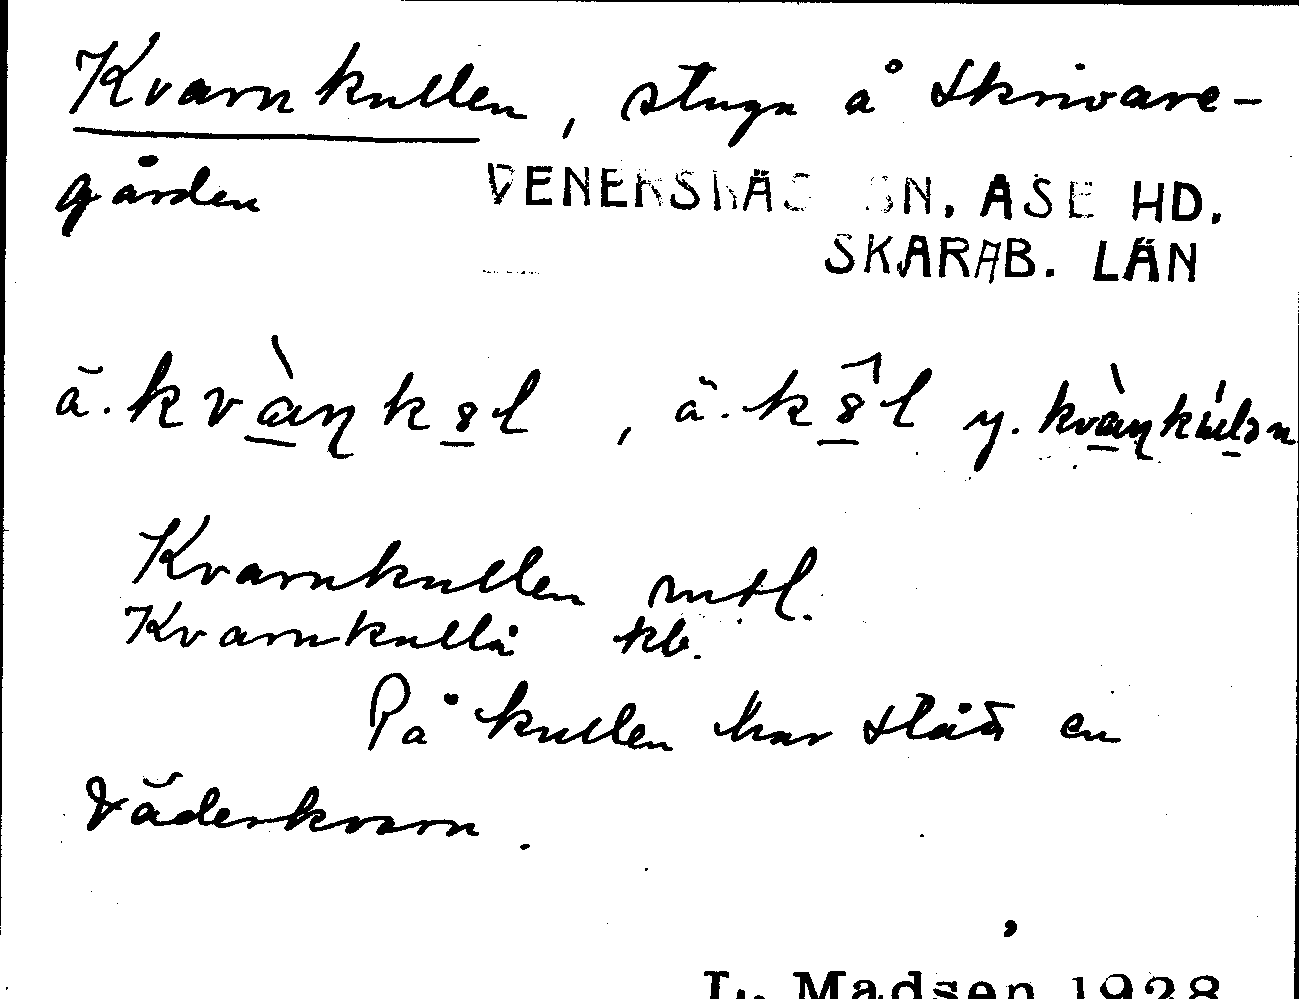 Kvarnkullen, stuga å Skrivare-
gården VENERSNÄS SN. ASE HD.
SKARAB. LÄN
ä. kvàɳk8l , ä. k8̂l y. kvàɳkúlən
Kvarnkullen mtl.
Kvarnkulla kb.
På kullen har stått en
väderkvarn.
L. Madsen 1928